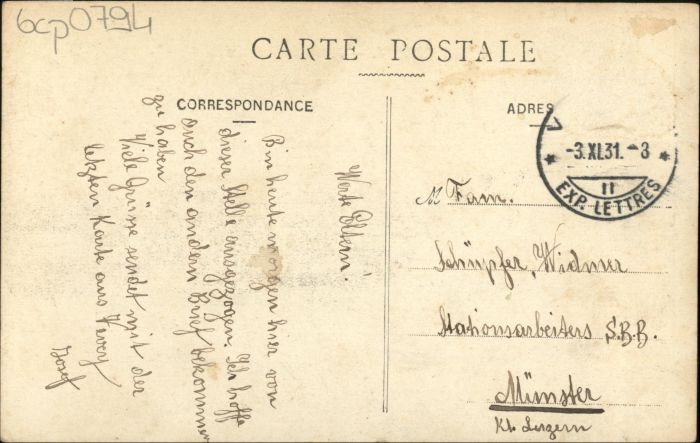 6cp0794
CARTE POSTALE
CORRESPONDANCE
ADRES
-3.XI.31.-8
II
EXP. LETTRES
Werte Eltern!
Bin heute morgen hier von
dieser Stelle ausgezogen. Ich hoffe
auch den andern Brief bekommen
zu haben
Viele Grüsse sendet mit der
letzten Karte aus Vevey
Josef
M Fam.
Schüpfer, Widmer
Stationsarbeiters S.B.B.
Münster
Kt. Luzern